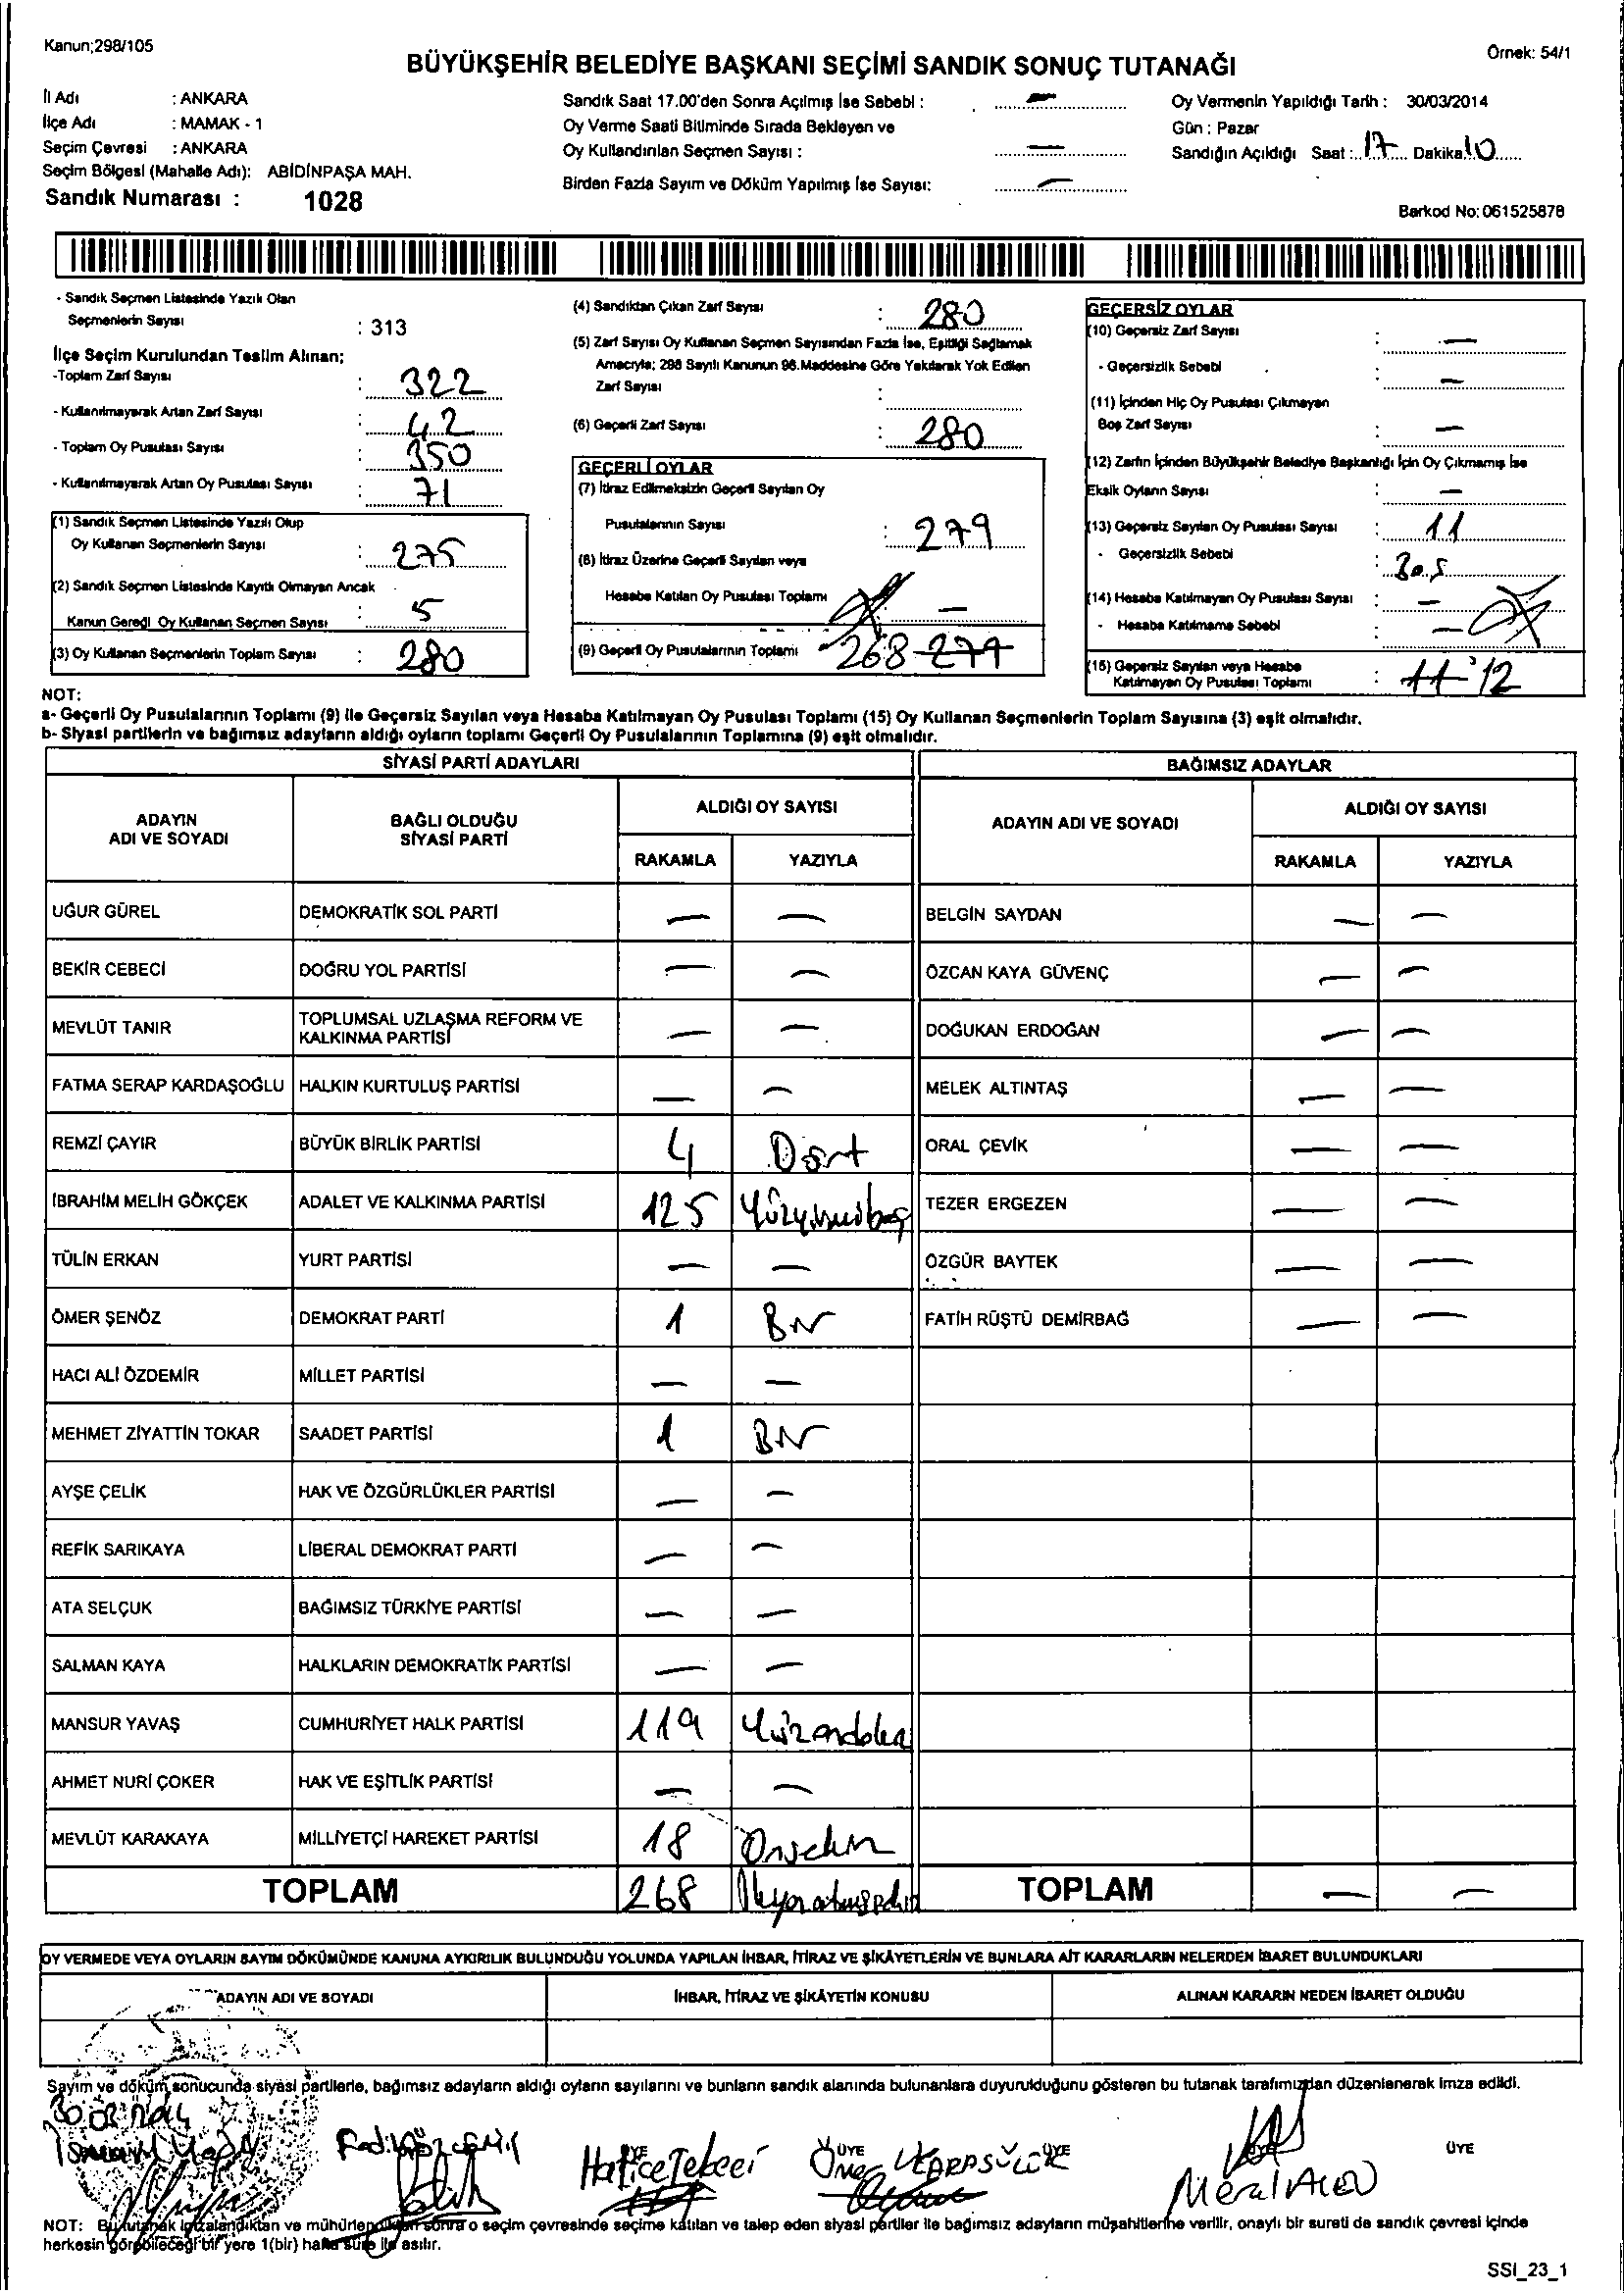 Kanun;298/105
Örnek: 54/1
BÜYÜKŞEHİR BELEDİYE BAŞKANI SEÇİMİ SANDIK SONUÇ TUTANAĞI
İl Adı : ANKARA
İlçe Adı : MAMAK - 1
Seçim Çevresi : ANKARA
Seçim Bölgesi (Mahalle Adı): ABİDİNPAŞA MAH.
Sandık Numarası : 1028
Sandık Saat 17.00'den Sonra Açılmış İse Sebebi : —
Oy Verme Saati Bitiminde Sırada Bekleyen ve
Oy Kullandırılan Seçmen Sayısı : —
Birden Fazla Sayım ve Döküm Yapılmış İse Sayısı: —
Oy Vermenin Yapıldığı Tarih : 30/03/2014
Gün : Pazar
Sandığın Açıldığı Saat : 17 Dakika: 10
Barkod No: 061525878
- Sandık Seçmen Listesinde Yazılı Olan
Seçmenlerin Sayısı : 313
İlçe Seçim Kurulundan Teslim Alınan;
-Toplam Zarf Sayısı : 322
- Kullanılmayarak Artan Zarf Sayısı : 42
- Toplam Oy Pusulası Sayısı : 350
- Kullanılmayarak Artan Oy Pusulası Sayısı : 71
(1) Sandık Seçmen Listesinde Yazılı Olup
Oy Kullanan Seçmenlerin Sayısı : 275
(2) Sandık Seçmen Listesinde Kayıtlı Olmayan Ancak
Kanun Gereği Oy Kullanan Seçmen Sayısı : 5
(3) Oy Kullanan Seçmenlerin Toplam Sayısı : 280
(4) Sandıktan Çıkan Zarf Sayısı : 280
(5) Zarf Sayısı Oy Kullanan Seçmen Sayısından Fazla İse, Eşitliği Sağlamak
Amacıyla; 298 Sayılı Kanunun 98.Maddesine Göre Yakılarak Yok Edilen
Zarf Sayısı :
(6) Geçerli Zarf Sayısı : 280
GEÇERLİ OYLAR
(7) İtiraz Edilmeksizin Geçerli Sayılan Oy
Pusulalarının Sayısı : 279
(8) İtiraz Üzerine Geçerli Sayılan veya
Hesaba Katılan Oy Pusulası Toplamı : —
(9) Geçerli Oy Pusulalarının Toplamı 268 279
GEÇERSİZ OYLAR
(10) Geçersiz Zarf Sayısı : —
- Geçersizlik Sebebi : —
(11) İçinden Hiç Oy Pusulası Çıkmayan
Boş Zarf Sayısı : —
(12) Zarfın İçinden Büyükşehir Belediye Başkanlığı İçin Oy Çıkmamış İse
Eksik Oyların Sayısı : —
(13) Geçersiz Sayılan Oy Pusulası Sayısı : 11
- Geçersizlik Sebebi : Boş
(14) Hesaba Katılmayan Oy Pusulası Sayısı : —
- Hesaba Katılmama Sebebi : —
(15) Geçersiz Sayılan veya Hesaba
Katılmayan Oy Pusulası Toplamı : 11 12
NOT:
a- Geçerli Oy Pusulalarının Toplamı (9) ile Geçersiz Sayılan veya Hesaba Katılmayan Oy Pusulası Toplamı (15) Oy Kullanan Seçmenlerin Toplam Sayısına (3) eşit olmalıdır.
b- Siyasi partilerin ve bağımsız adayların aldığı oyların toplamı Geçerli Oy Pusulalarının Toplamına (9) eşit olmalıdır.
SİYASİ PARTİ ADAYLARI
BAĞIMSIZ ADAYLAR
ADAYIN
ADI VE SOYADI
BAĞLI OLDUĞU
SİYASİ PARTİ
ALDIĞI OY SAYISI
RAKAMLA YAZIYLA
ADAYIN ADI VE SOYADI
ALDIĞI OY SAYISI
RAKAMLA YAZIYLA
UĞUR GÜREL DEMOKRATİK SOL PARTİ — — BELGİN SAYDAN — —
BEKİR CEBECİ DOĞRU YOL PARTİSİ — — ÖZCAN KAYA GÜVENÇ — —
MEVLÜT TANIR TOPLUMSAL UZLAŞMA REFORM VE
KALKINMA PARTİSİ — — DOĞUKAN ERDOĞAN — —
FATMA SERAP KARDAŞOĞLU HALKIN KURTULUŞ PARTİSİ — — MELEK ALTINTAŞ — —
REMZİ ÇAYIR BÜYÜK BİRLİK PARTİSİ 4 Dört ORAL ÇEVİK — —
İBRAHİM MELİH GÖKÇEK ADALET VE KALKINMA PARTİSİ 125 Yüzyirmibeş TEZER ERGEZEN — —
TÜLİN ERKAN YURT PARTİSİ — — ÖZGÜR BAYTEK — —
ÖMER ŞENÖZ DEMOKRAT PARTİ 1 Bir FATİH RÜŞTÜ DEMİRBAĞ — —
HACI ALİ ÖZDEMİR MİLLET PARTİSİ — —
MEHMET ZİYATTİN TOKAR SAADET PARTİSİ 1 Bir
AYŞE ÇELİK HAK VE ÖZGÜRLÜKLER PARTİSİ — —
REFİK SARIKAYA LİBERAL DEMOKRAT PARTİ — —
ATA SELÇUK BAĞIMSIZ TÜRKİYE PARTİSİ — —
SALMAN KAYA HALKLARIN DEMOKRATİK PARTİSİ — —
MANSUR YAVAŞ CUMHURİYET HALK PARTİSİ 119 Yüzondokuz
AHMET NURİ ÇOKER HAK VE EŞİTLİK PARTİSİ — —
MEVLÜT KARAKAYA MİLLİYETÇİ HAREKET PARTİSİ 18 Onsekiz
TOPLAM 268 TOPLAM — —
OY VERMEDE VEYA OYLARIN SAYIM DÖKÜMÜNDE KANUNA AYKIRILIK BULUNDUĞU YOLUNDA YAPILAN İHBAR, İTİRAZ VE ŞİKÂYETLERİN VE BUNLARA AİT KARARLARIN NELERDEN İBARET BULUNDUKLARI
ADAYIN ADI VE SOYADI İHBAR, İTİRAZ VE ŞİKÂYETİN KONUSU ALINAN KARARIN NEDEN İBARET OLDUĞU
Sayım ve döküm sonucunda siyasi partilerle, bağımsız adayların aldığı oyların sayılarını ve bunların sandık alanında bulunanlara duyurulduğunu gösteren bu tutanak tarafımızdan düzenlenerek imza edildi.
Hatice Tekeci
ÜYE
ÜYE
Meral
ÜYE
NOT: Bu tutanak imzalandıktan ve mühürlendikten sonra o seçim çevresinde seçime katılan ve talep eden siyasi partiler ile bağımsız adayların müşahitlerine verilir, onaylı bir sureti de sandık çevresi içinde
herkesin görebileceği bir yere 1(bir) hafta süre ile asılır.
SSI_23_1